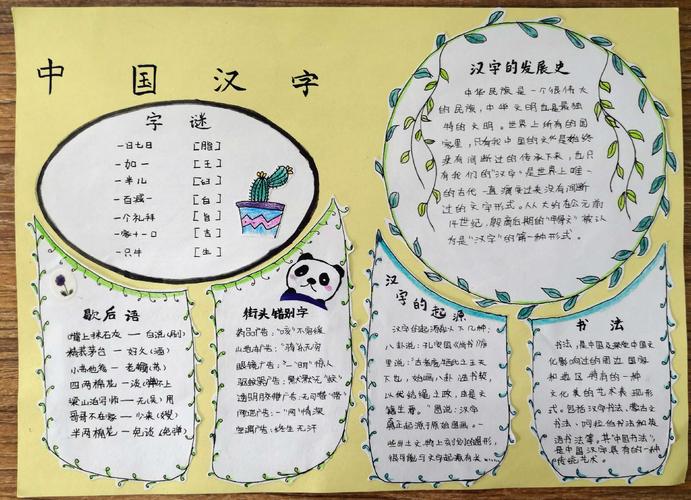 中国汉字
字谜
一日七日 [脂]
一加一 [王]
一半儿 [臼]
一百减一 [白]
一个礼拜 [旨]
一家十一口 [吉]
一只牛 [生]
汉字的发展史
中华民族是一个很伟大
的民族，中华文明也是最独
特的文明。世界上所有的国
家里，只有我中国的文化是始终
没有间断过的传承下来，也只
有我们的"汉字"是世界上唯一
的古代一直演变过来没有间断
过的文字形式。从大约在公元前
14世纪，殷商后期的"甲骨文"被认
为是"汉字"的第一种形式。
歇后语
墙上抹石灰——白说(刷)
精装茅台——好久(酒)
四两棉花——谈(弹)不上
梁山泊军师——无(吴)用
哥哥不在家——少来(嫂)
半两棉花——免谈(免弹)
街头错别字
药品广告："咳"不容缓
山地车广告："骑"乐无穷
眼镜广告：一"明"惊人
驱蚊器广告：默默无"蚊"
透明胶带广告：无可"带"
网吧广告：一"网"情深
空调广告：终生无汗
汉
字的起源
汉字的起源有以下几种：
八卦说：孔安国《尚书》序
里说："古者庖牺氏之王天
下也，始画八卦，造书契，
以代结绳之政，由是文
籍生焉。"图说：汉字
真正起源于原始图画。一
些出土文物上刻划的图形，
很可能与文字起源有关
书法
书法，是中国及深受中国文
化影响过的周边国家
和地区特有的一种
文化美的艺术表现形
式。包括汉字书法、蒙古文
书法、阿拉伯书法和英
语书法等。其"中国书法"，
是中国汉字具有的一种
传统艺术。